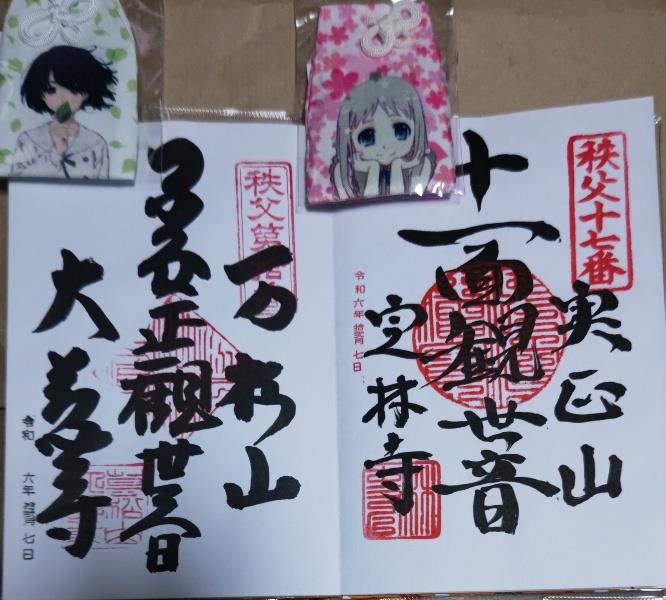 秩父十七番
実正山
十一面観世音
定林寺
令和六年 七日
秩父第拾番
万松山
子安正觀世音
大慈寺
令和 六年 七日